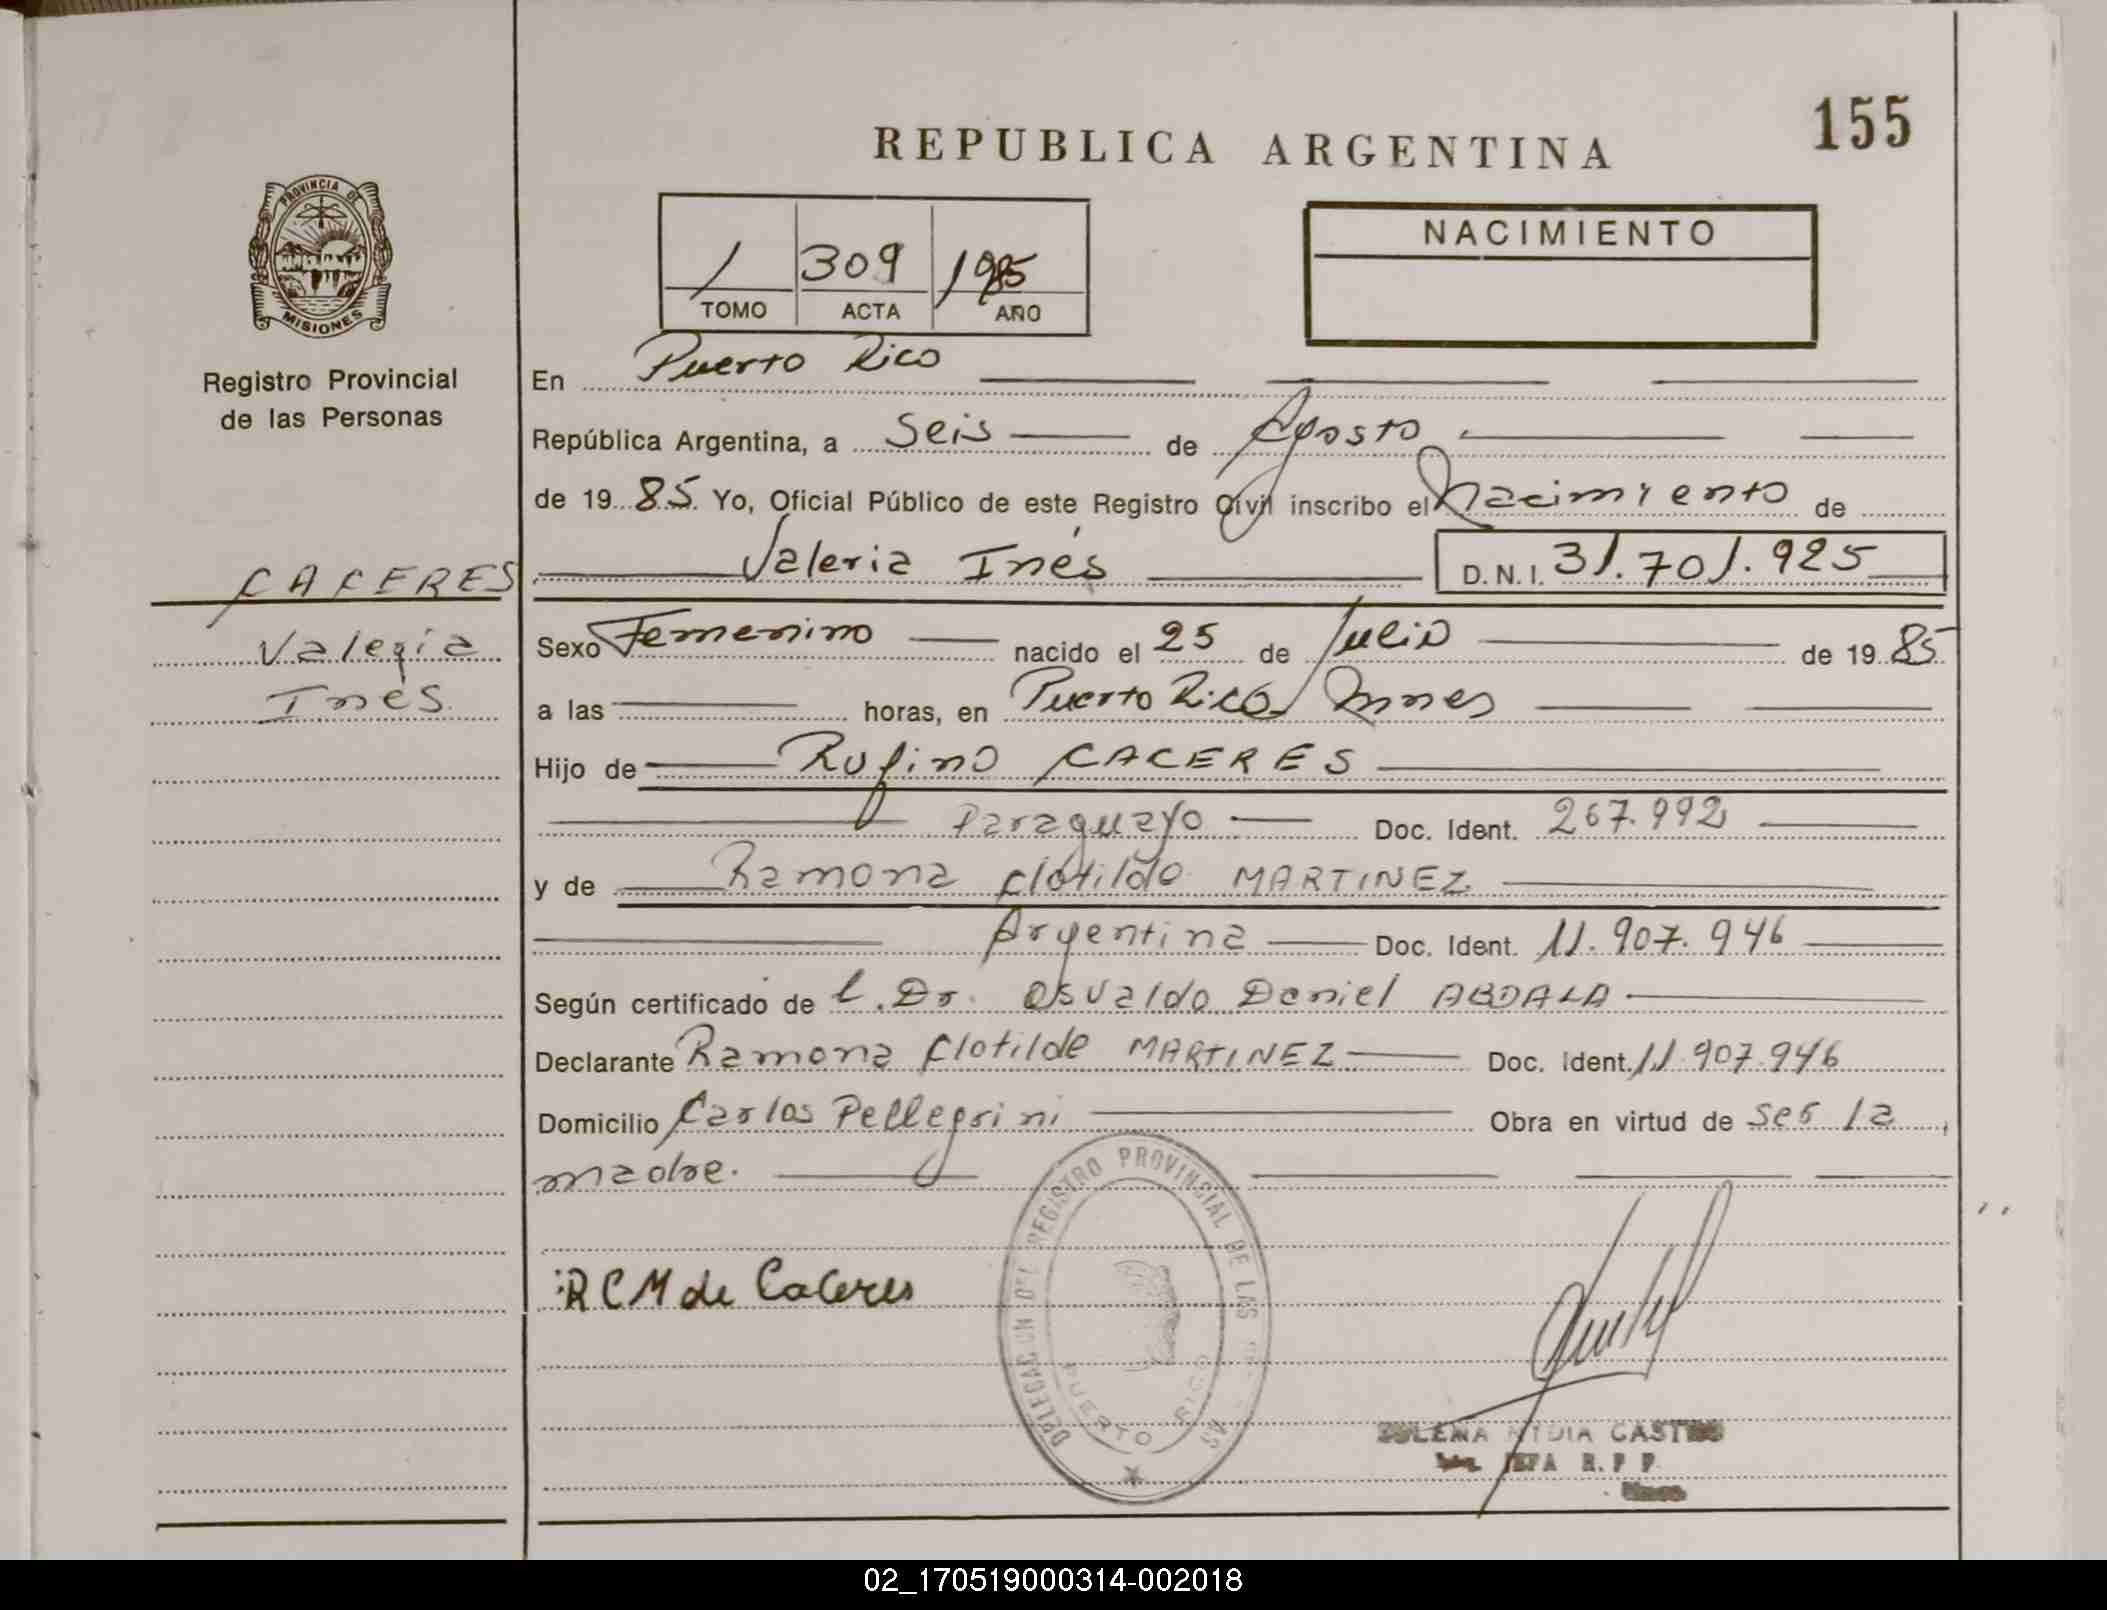 155
REPUBLICA ARGENTINA
PROVINCIA DE
MISIONES
Registro Provincial
de las Personas
1 309 1985
TOMO ACTA AÑO
NACIMIENTO
En Puerto Rico
República Argentina, a Seis de Agosto
de 1985 Yo, Oficial Público de este Registro Civil inscribo el Nacimiento de
Valeria Inés D.N.I. 31.701.925
CACERES
Valeria
Inés
Sexo Femenino nacido el 25 de Julio de 1985
a las horas, en Puerto Rico Mnes
Hijo de Rufino CACERES
Paraguayo Doc. Ident. 267.992
y de Ramona Clotilde MARTINEZ
Argentina Doc. Ident. 11.907.946
Según certificado de l. Dr. Osvaldo Daniel ABDALA
Declarante Ramona Clotilde MARTINEZ Doc. Ident. 11.907.946
Domicilio Carlos Pellegrini Obra en virtud de ser la
madre.
DELEGACION DEL REGISTRO PROVINCIAL DE LAS
PUERTO RICO
RCM de Caceres
CASTRO
JEFA R.P.P.
02_170519000314-002018